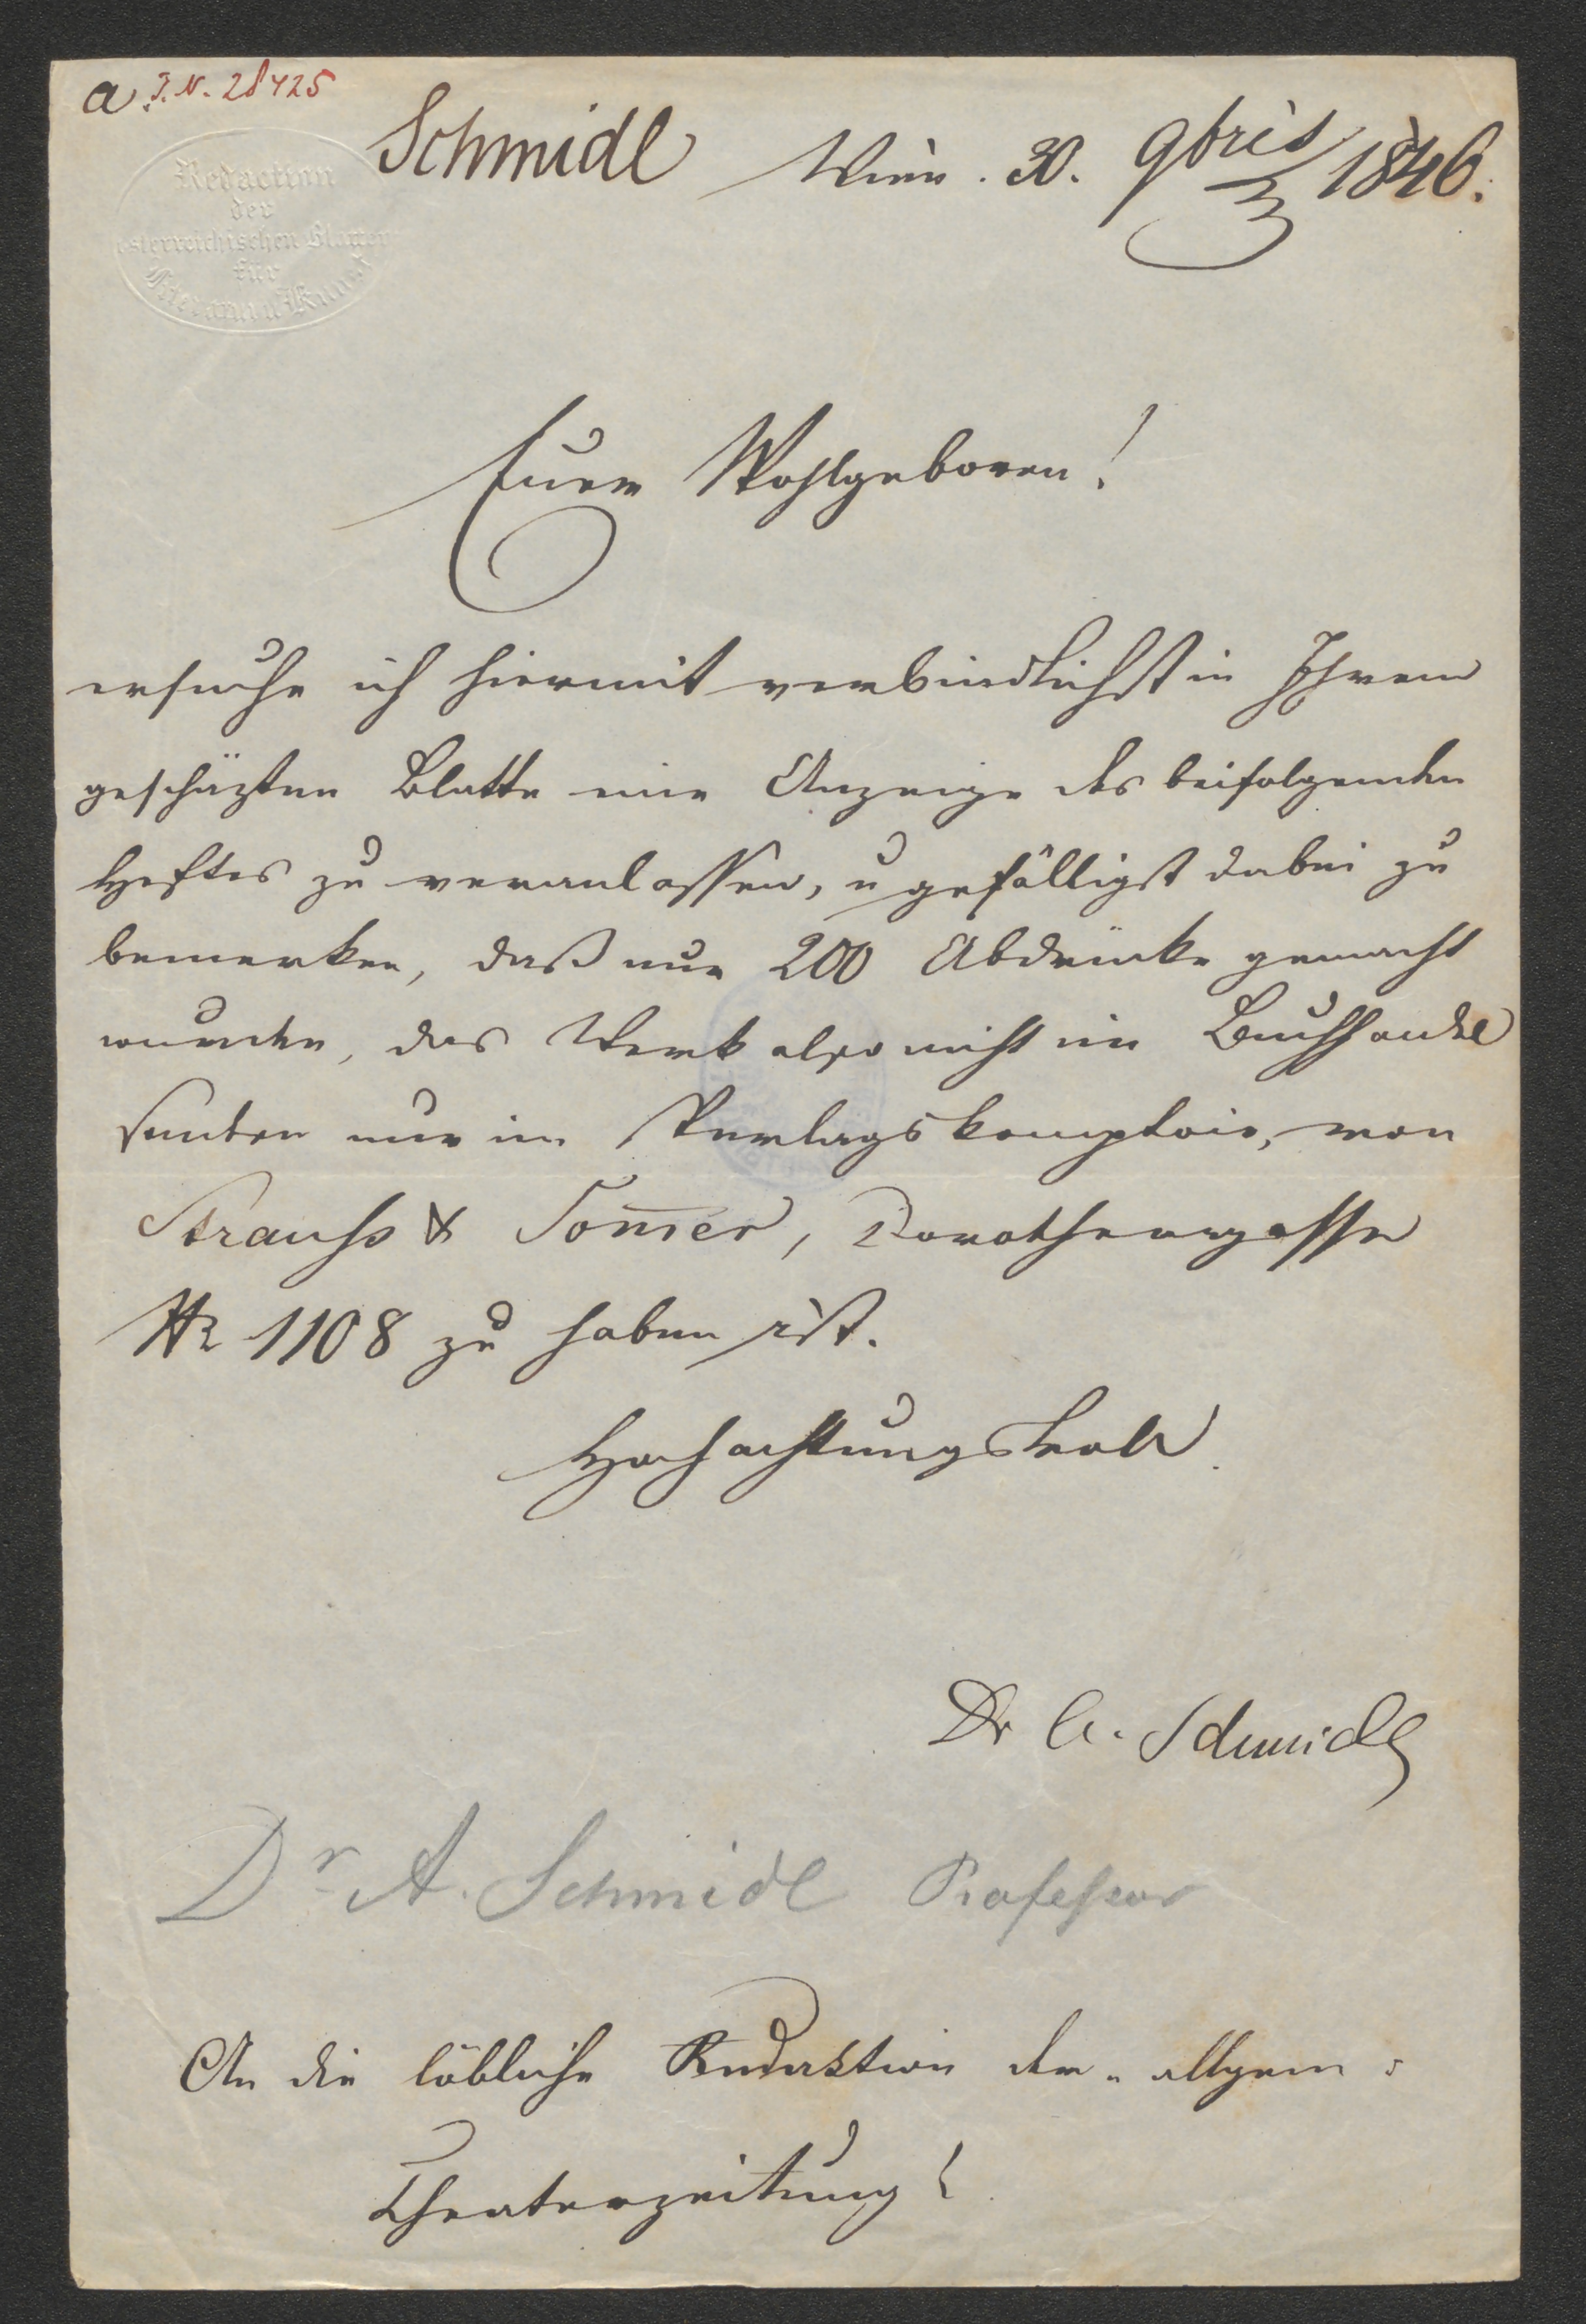 a J.N. 28425
Schmidl Wien. 30. 9bris 1846.
Redaction
der
österreichischen Blätter
für
Literatur u Kunst
Euer Wohlgeboren!
ersuche ich hiermit verbindlichst in Ihrem
geschäzten Blatte eine Anzeige des beifolgenden
Heftes zu veranlassen, u gefälligst dabei zu
bemerken, daß nur 200 Abdrücke gemacht
wurden, das Werk also nicht im Buchhandel
sondern nur im Verlagskomptoir, von
Strauss & Som̅er, Dorotheergasse
Nr 1108 zu haben ist.
Hochachtungsvoll
Dr A. Schmidl
Dr A. Schmidl Professor
An die löbliche Redaktion der „allgem:
Theaterzeitung!